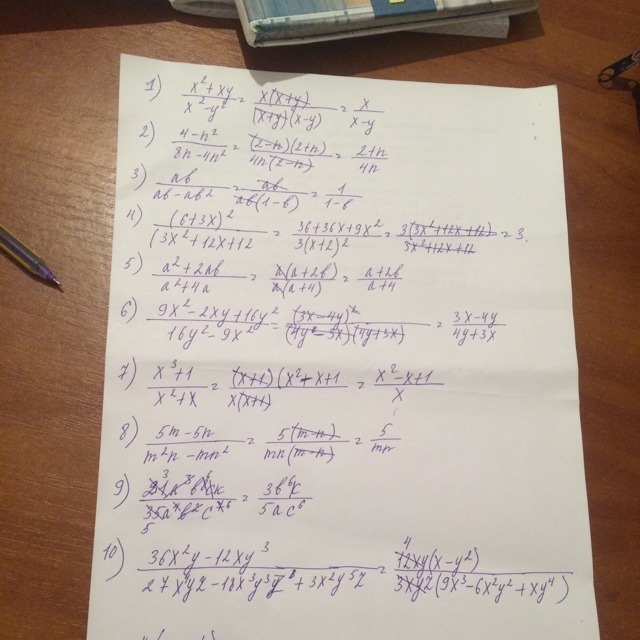 1) x²+xy / x²-y² = x(x+y) / (x+y)(x-y) = x / x-y
2) 4-n² / 8n-4n² = (2-n)(2+n) / 4n(2-n) = 2+n / 4n
3) ab / ab-ab² = ab / ab(1-b) = 1 / 1-b
4) (6+3x)² / (3x²+12x+12 = 36+36x+9x² / 3(x+2)² = 3(3x²+12x+12) / 3x²+12x+12 = 3.
5) a²+2ab / a²+4a = a(a+2b) / a(a+4) = a+2b / a+4
6) 9x²-2xy+16y² / 16y²-9x² = (3x-4y)² / (4y-3x)(4y+3x) = 3x-4y / 4y+3x
7) x³+1 / x²+x = (x+1)(x²-x+1 / x(x+1) = x²-x+1 / x
8) 5m-5n / m²n-mn² = 5(m-n) / mn(m-n) = 5 / mn
9) = 3b⁶k / 5ac⁶
10) 36x²y-12xy³ / = 12xy(x-y²) / 3xyz(9x³-6x²y²+xy⁴)